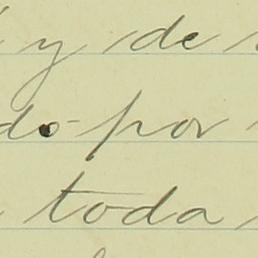 y de
do por
toda